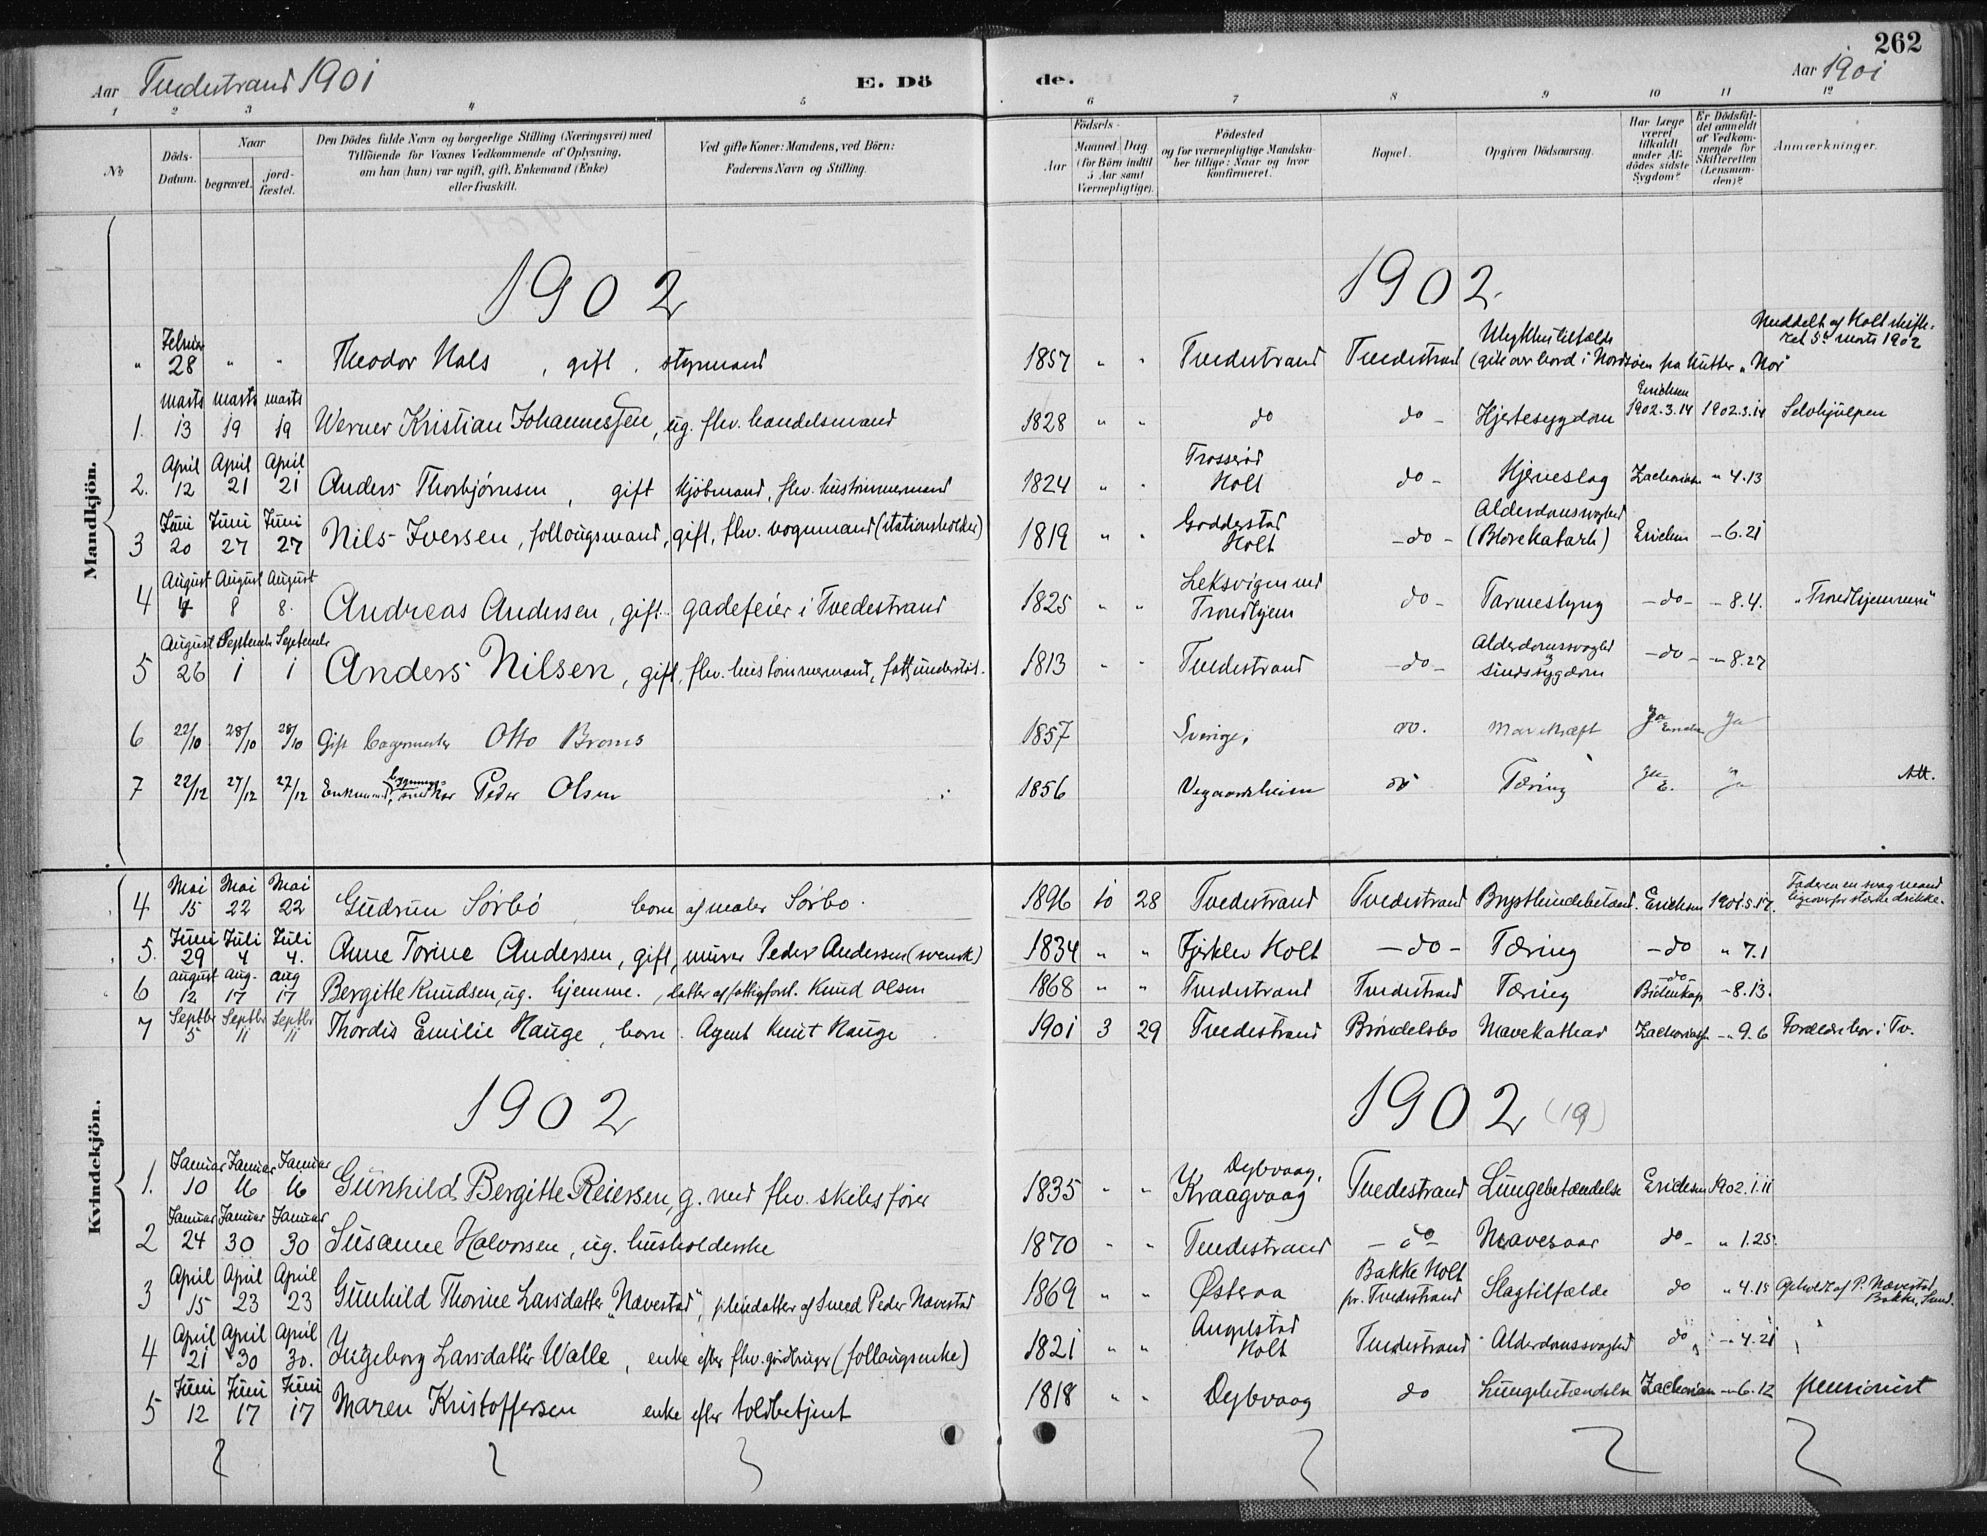 262
Aar Tvedestrand 1901 E. Dö de. Aar 1901
1 2 3 4 5 6 7 8 9 10 11 12
No
Döds-Datum.
Naar
begravet.
jord-fæstet.
Den Dödes fulde Navn og borgerlige Stilling (Næringsvei) med
Tilföiende for Voxnes Vedkommende af Oplysning,
om han (hun) var ugift, gift, Enkemand (Enke)
eller fraskilt.
Ved gifte Koner: Mandens, ved Börn:
Faderens Navn og Stilling.
Födsels-
Aar
Maaned Dag
(for Börn indtil
5 Aar samt
Værnepligtige).
Födested
og for værnepligtige Mandska-
ber tillige: Naar og hvor
konfirmeret.
Bopæl.
Opgiven Dödsaarsag.
Har Læge
været
tilkaldt
under Af-
dödes sidste
Sygdom?
Er Dödsfal-
det anmeldt
af Vedkom-
mende for
Skifteretten
(Lensman-
den)?
Anmærkninger.
Mandkjön.
1902 1902
" Februar 28 " " Theodor Hals, gift, styrmand 1857 " " Tvedestrand Tvedestrand Ulykkestilfælde (gik over bord i Nordsøen fra kutter "Nor" Meddelt af Holt skifte-ret 5te marts 1902
1. marts 13 marts 19 marts 19 Werner Kristian Johannessen, ug. flv. handelsmand 1828 " " do do - Hjertesygdom Erichsen 1902.3.14 1902.3.14 Selvhjulpen
2. April 12 April 21 April 21 Anders Thorbjørnsen, gift kjøbmand, flv. hustømmermand 1824 " " Trosserød Holt do - Hjerneslag Zachariasen " 4.13
3 Juni 20 Juni 27 Juni 27 Nils Iversen, follougsmand, gift, flv. vognmand (stationsholder) 1819 " " Godderstad Holt - do - Alderdomssvaghed (Blærekatarh) Erichsen - 6.21
4 August 4 August 8 August 8. Andreas Andersen, gift gadefeier i Tvedestrand 1825 " " Leksvigen ved Trondhjem do - Tarmeslyng - do - - 8.4. "Trondhjemmeren"
5 August 26 September 1 September 1 Anders Nilsen, gift, flv. hustømmermand, fattigunderstøt. 1813 " " Tvedestrand - do - Alderdomssvaghed & sindssygdom - do - - 8.27
6 22/10 28/10 28/10 Gift bagermester Otto Broms 1857 Sverige. do. Mavekræft Ja Erichsen Ja
7 22/12 27/12 27/12 Enkemand, bygnings-snedker Peder Olsen 1856 Vegaardsheien do Tæring Ja E. Ja Att.
Kvindekjön.
4 Mai 15 Mai 22 Mai 22 Gudrun Sørbø, barn af maler Sørbø. 1896 10 28 Tvedestrand Tvedestrand Brysthindebetænd. Erichsen 1901.5.17. Faderen en svag mand ligeoverfor stærke drikke.
5. Juni 29 Juli 4 Juli 4. Anne Torine Andersen, gift, murer Peder Andersen (svensk) 1834 " " Fjerklev Holt - do - Tæring - do " 7.1
6 august 12 aug. 17 aug 17 Bergitte Knudsen, ug. hjemme, datter af fattigforst. Knud Olsen 1868 " " Tvedestrand Tvedestrand Tæring - do - Bidenkap - 8.13.
7 Septbr 5 Septbr 11 Septbr 11 Thordis Emilie Hauge, barn. Agent Knut Hauge 1901 3 29 Tvedestrand Brøndelsbo Mavekathar Zachariasen - " 9.6 Forældre bor i Tv.
1902 1902 (19)
1. Januar 10 Januar 16 Januar 16 Gunhild Bergitte Reiersen, g. med flv. skibsfører 1835 " " Dybvaag, Kraagvaag Tvedestrand Lungebetændelse Erichsen 1902.1.11
2 Januar 24 Januar 30 Januar 30 Susanne Halvorsen, ug. husholderske 1870 " " Tvedestrand - do - Mavesaar do - " 1.25.
3 April 15 April 23 April 23 Gunhild Thorine Larsdatter "Nævestad", pleiedatter af Smed Peder Nævestad 1869 " " Østeraa Bakke Holt pr. Tvedestrand Slagtilfælde do " 4.15 Opholdt af P. Nævestad Bakke, Sund.
4 April 21 April 30 April 30. Ingeborg Larsdatter Walle, enke efter flv. gårdbruger (follougsenke) 1821 " " Angelstad Holt Tvedestrand Alderdomssvaghed do - " 4.21
5 Juni 12 Juni 17 Juni 17 Maren Kristoffersen enke efter toldbetjent 1818 " " Dybvaag do Lungebetændelse Zachariasen - " 6.12 pensionist